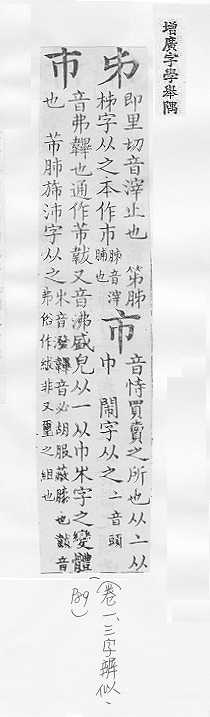 增廣字學舉隅
𠂔 即里切音滓止也 第胏
柹字从之本作巿 胏音滓
脯也
市 音恃買賣之所也从亠从
巾 鬧字从之 亠音頭
巿 音弗韠也通作芾韍又音沸盛皃从一从巾𣎵字之變體
也 芾肺旆沛字从之 𣎵音發韠音必胡服蔽膝也韍音
弗俗作紱非又璽之組也
(卷一、三字辨似、
P89)